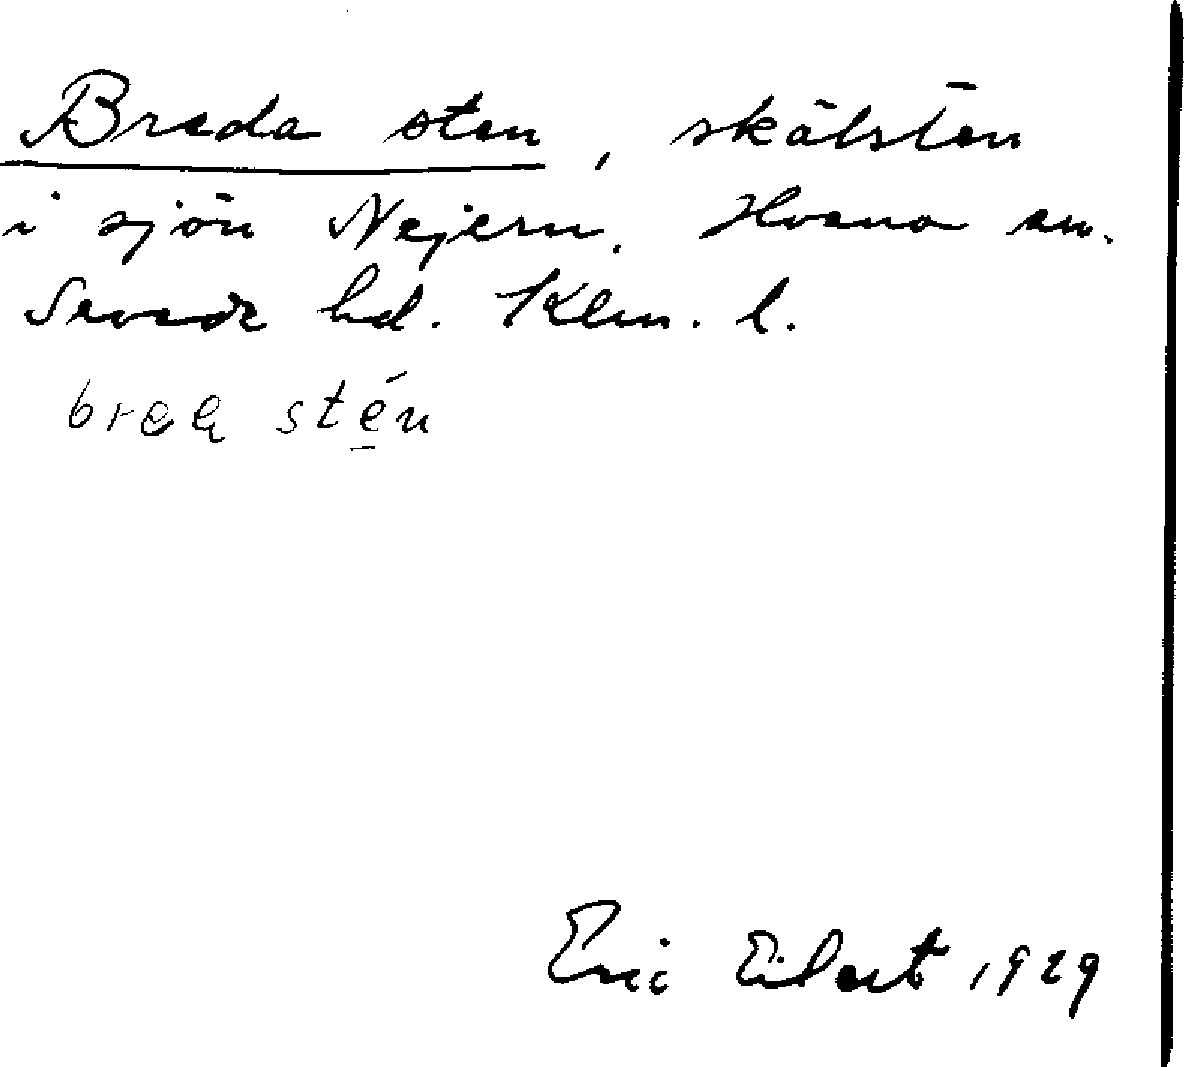 Breda sten, skälsten
i sjön Nejern. Hvena sn.
Sevede hd. Klm. l.
stén
Eric Eilert 1929